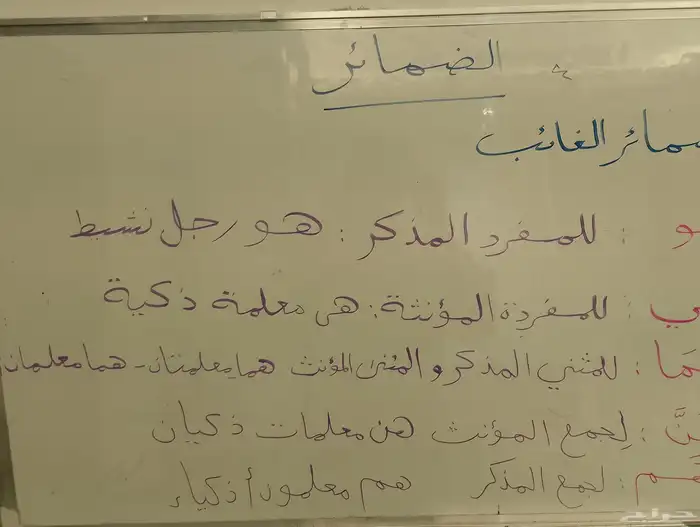 الضمائر
ضمائر الغائب
هو : للمفرد المذكر : هو رجل نشيط
هي : للمفردة المؤنثة : هي معلمة ذكية
هما : للمثنى المذكر و المثنى المؤنث هما معلمتان - هما معلمان
هنَّ : لجمع المؤنث هن معلمات ذكيان
هم : لجمع المذكر هم معلمون أذكياء
حراج